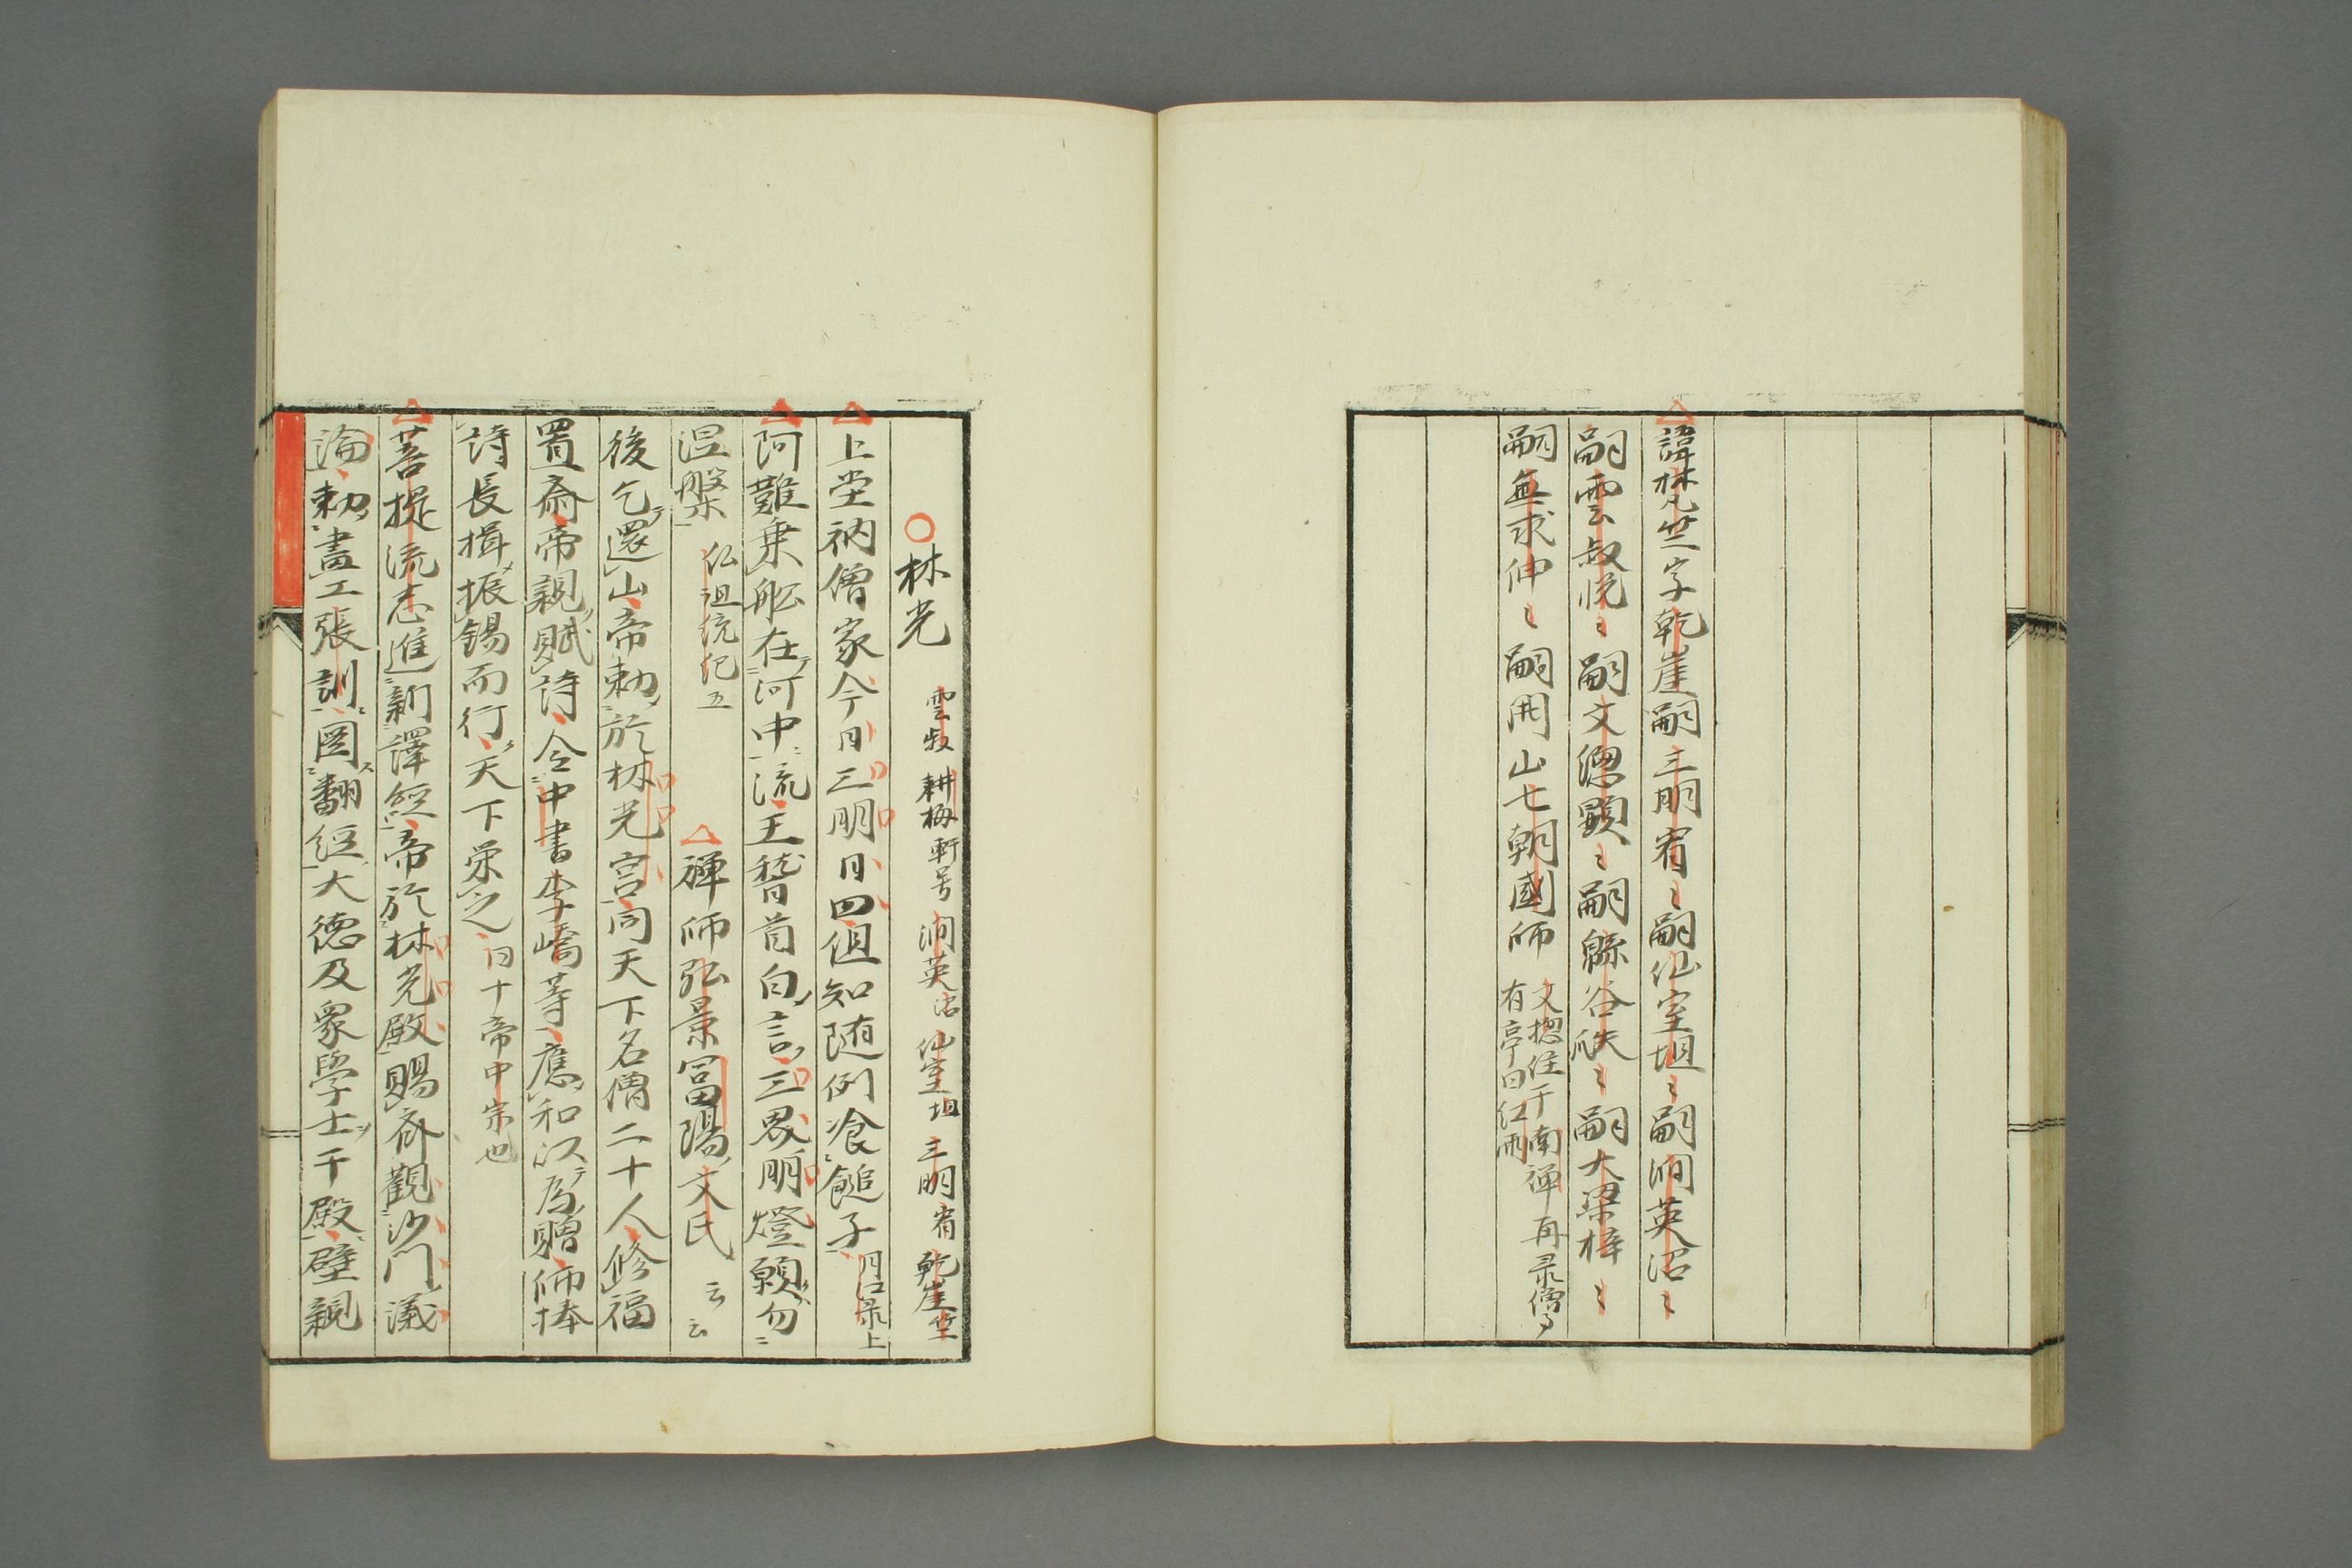 諱梵竺字乾崖嗣三明宥〻嗣仙室坦〻嗣澗英沼〻
嗣雲叔悦〻嗣文憁顕〻嗣緜谷瓞〻嗣大梁梓〻
嗣無求伸〻嗣開山七朝國師
文揔住于南禅再录傳
有亭曰紅雨
○林光
雲叔 耕梅軒号 澗英沼 仙室坦 三明宥 乾崖竺
上堂衲僧家今日三明日四但知随例飡䭔子
月江录上
阿難乗舩在河中流王稽首白言三界明燈願勿
涅槃
仏祖統紀五
禅師弘景冨陽文氏云云
後乞還山帝勅於林光宮同天下名僧二十人修福
置斎帝親賦詩令中書李嶠等應和以為贈師捧
詩長揖振錫而行天下栄之
同十帝中宗也
菩提流志進新譯經帝於林光殿賜斎觀沙門議
論勅畫工張訓圖翻經大德及衆學士于殿壁親